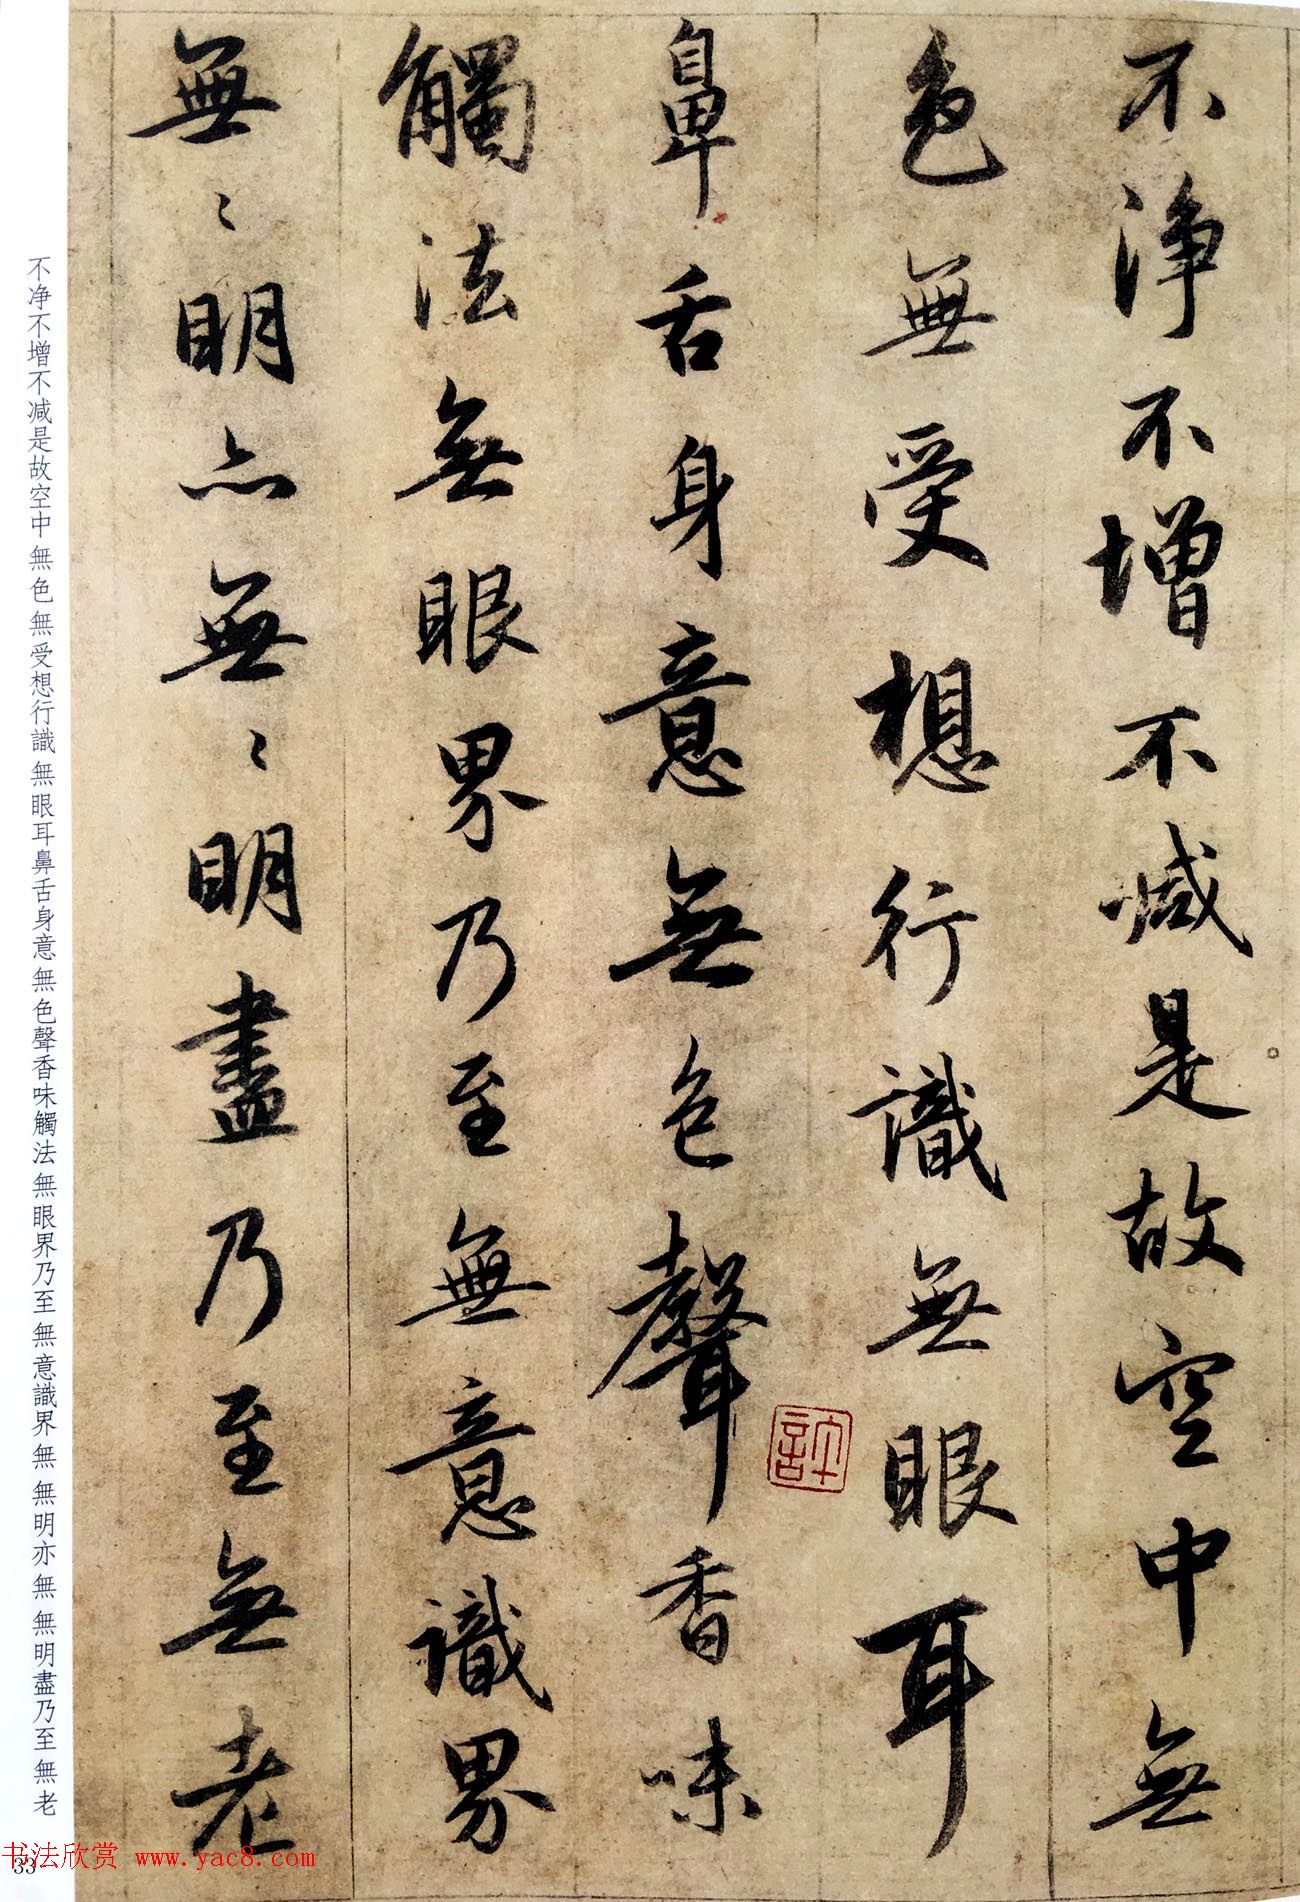 不淨不增不減是故空中無
色無受想行識無眼耳
鼻舌身意無色聲香味
觸法無眼界乃至無意識界
無〻明亦無〻明盡乃至無老
許
不净不增不减是故空中無色無受想行識無眼耳鼻舌身意無色聲香味觸法無眼界乃至無意識界無無明亦無無明盡乃至無老
33
书法欣赏 www.yac8.com